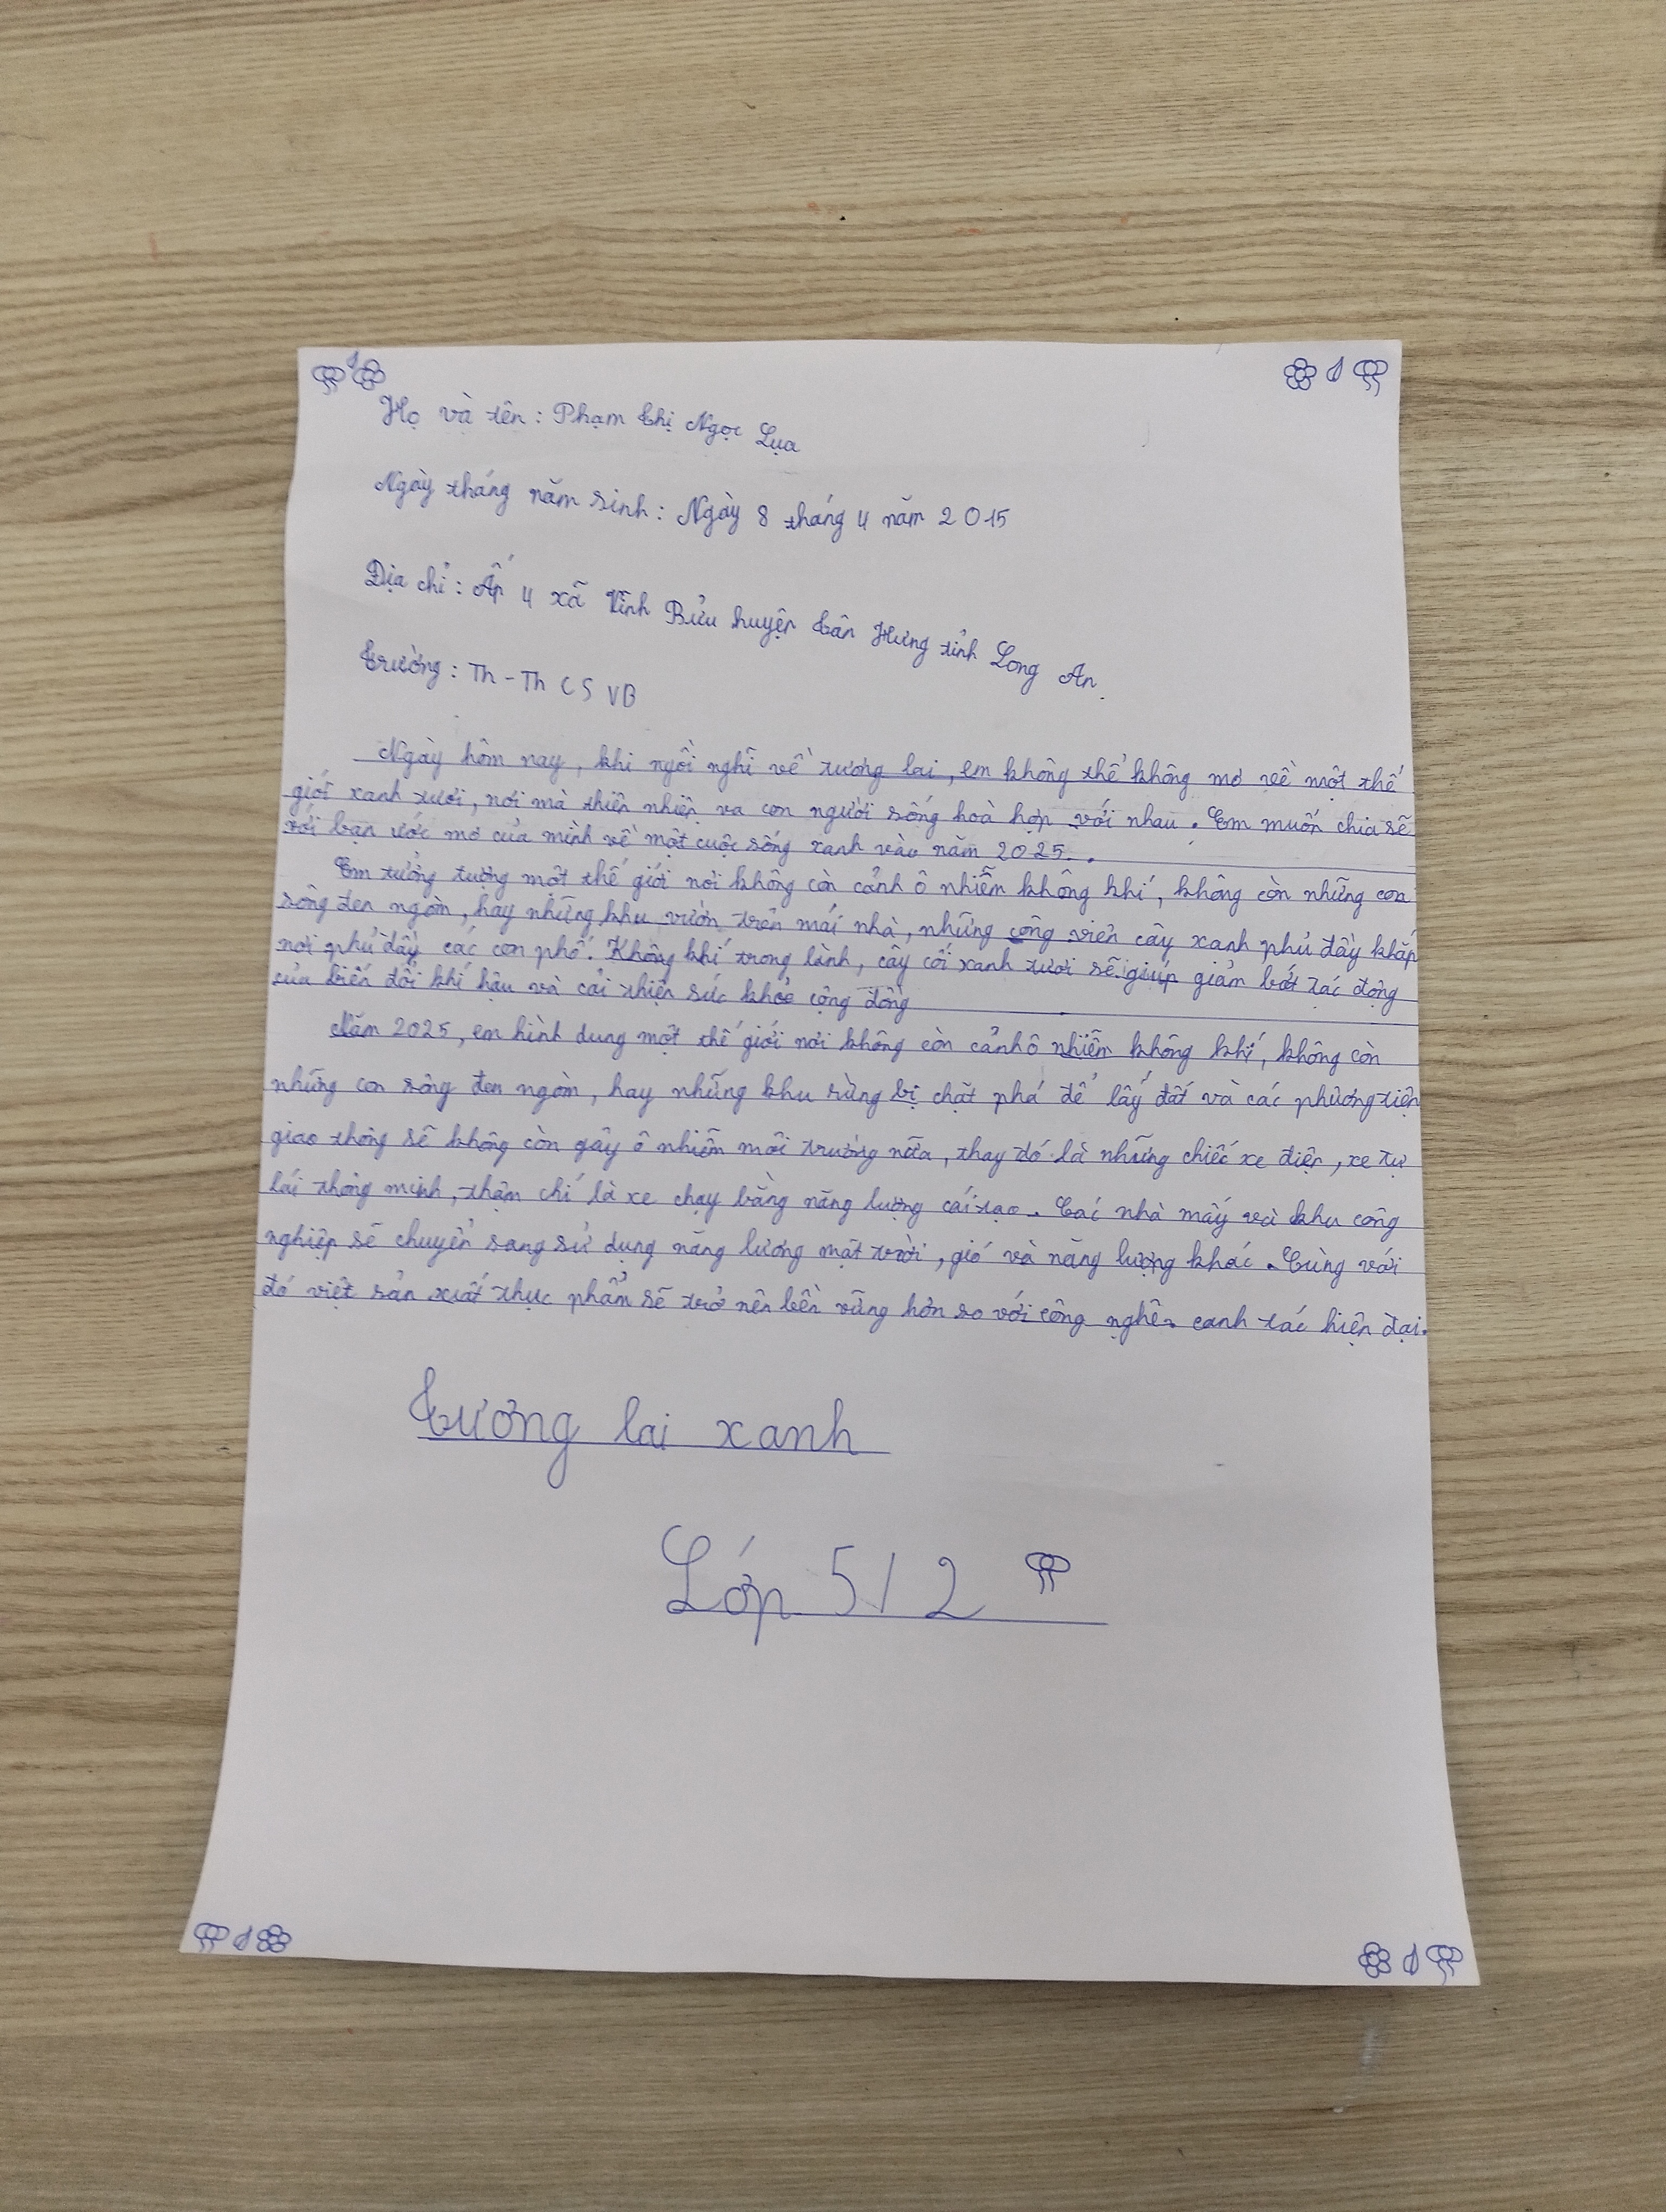 Họ và tên: Phạm Thị Ngọc Lụa
Ngày tháng năm sinh: Ngày 8 tháng 4 năm 2015
Địa chỉ: Ấp 4 xã Vĩnh Bửu huyện Tân Hưng tỉnh Long An.
Trường: Th-Th CS VB
Ngày hôm nay, khi ngồi nghĩ về tương lai, em không thể không mơ về một thế
giới xanh tươi, nơi mà thiên nhiên va con người sống hoà hợp với nhau. Em muốn chia sẽ
với bạn ước mơ của mình về một cuộc sống xanh vào năm 2025..
Em tưởng tượng một thế giới nơi không còn cảnh ô nhiễm không khí, không còn những con
sông đen ngòm, hay những khu vườn trên mái nhà, những công viên cây xanh phủ đầy khắp
nơi phủ đầy các con phố. Không khí trong lành, cây cối xanh tươi sẽ giúp giảm bớt tác động
của biến đổi khí hậu và cải thiện sức khoẻ cộng đồng
Năm 2025, em hình dung một thế giới nơi không còn cảnh ô nhiễm không khí, không còn
những con sông đen ngòm, hay những khu rừng bị chặt phá để lấy đất và các phương tiện
giao thông sẽ không còn gây ô nhiễm môi trường nữa, thay đó là những chiếc xe điện, xe tự
lái thông minh, thậm chí là xe chạy bằng năng lượng cái tạo. Các nhà máy và khu công
nghiệp sẽ chuyển sang sử dụng năng lương mặt trời, gió và năng lượng khác. Cùng với
đó việt sản xuất thực phẩm sẽ trở nên bền vững hơn so với công nghê canh tác hiện đại.
Tương lai xanh
Lớp 5/2